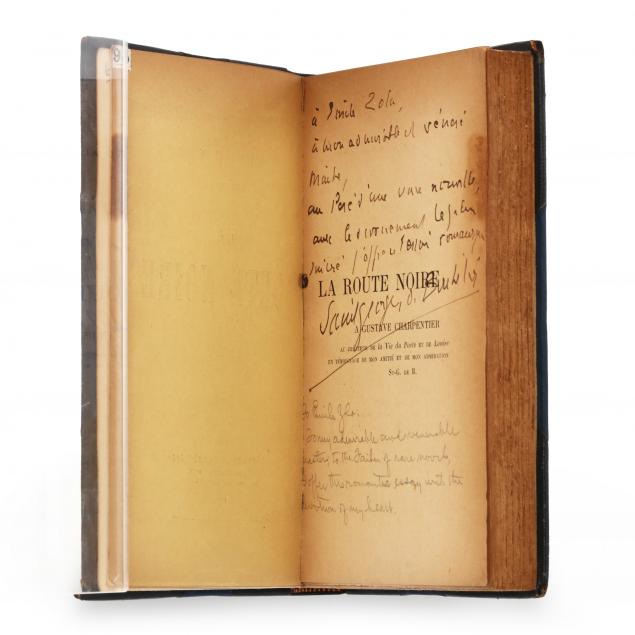 9
à Emile Zola,
à mon admirable et vénéré
Maître,
au Père d'une race nouvelle,
avec le dévouement le plus
j'offre l'essai romanesque
LA ROUTE NOIRE
Saint-Georges de Bouhélier
A GUSTAVE CHARPENTIER
AU CRÉATEUR DE la Vie du Poète ET DE Louise
EN TÉMOIGNAGE DE MON AMITIÉ ET DE MON ADMIRATION
ST-G. DE B.
To Emile Zola.
To my admirable and venerable
master, to the Father of
I offer this romantic essay with the
devotion of my heart.